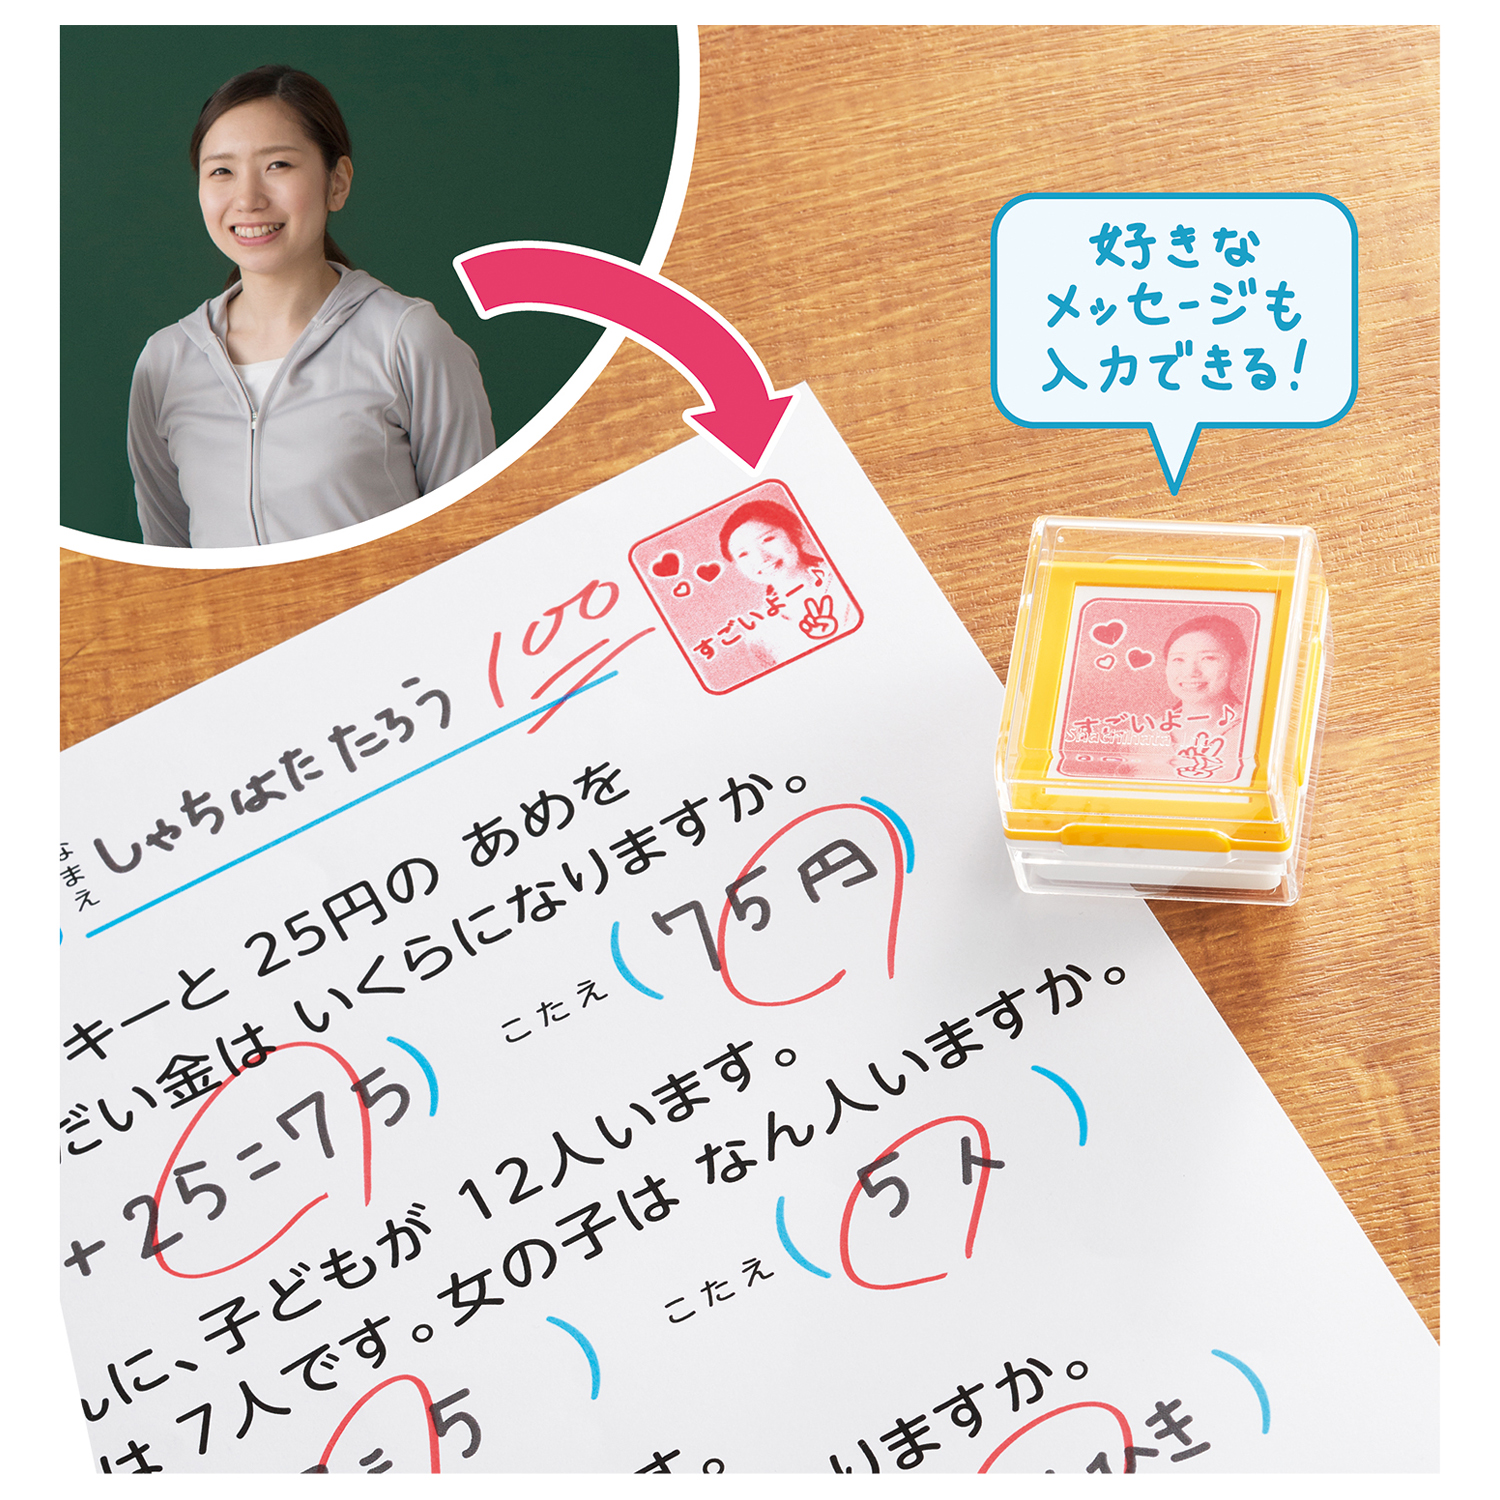 好きな
メッセージも
入力できる!
すごいよー♪
100
すごいよー♪
Shachihata
なまえ
しゃちはた たろう
キーと 25円の あめを
だい金は いくらになりますか。
+25=75)
こたえ (75円)
に、子どもが 12人います。
は 7人です。女の子は なん人いますか。
=5)
こたえ (5人)
す。
りますか。
ひき)